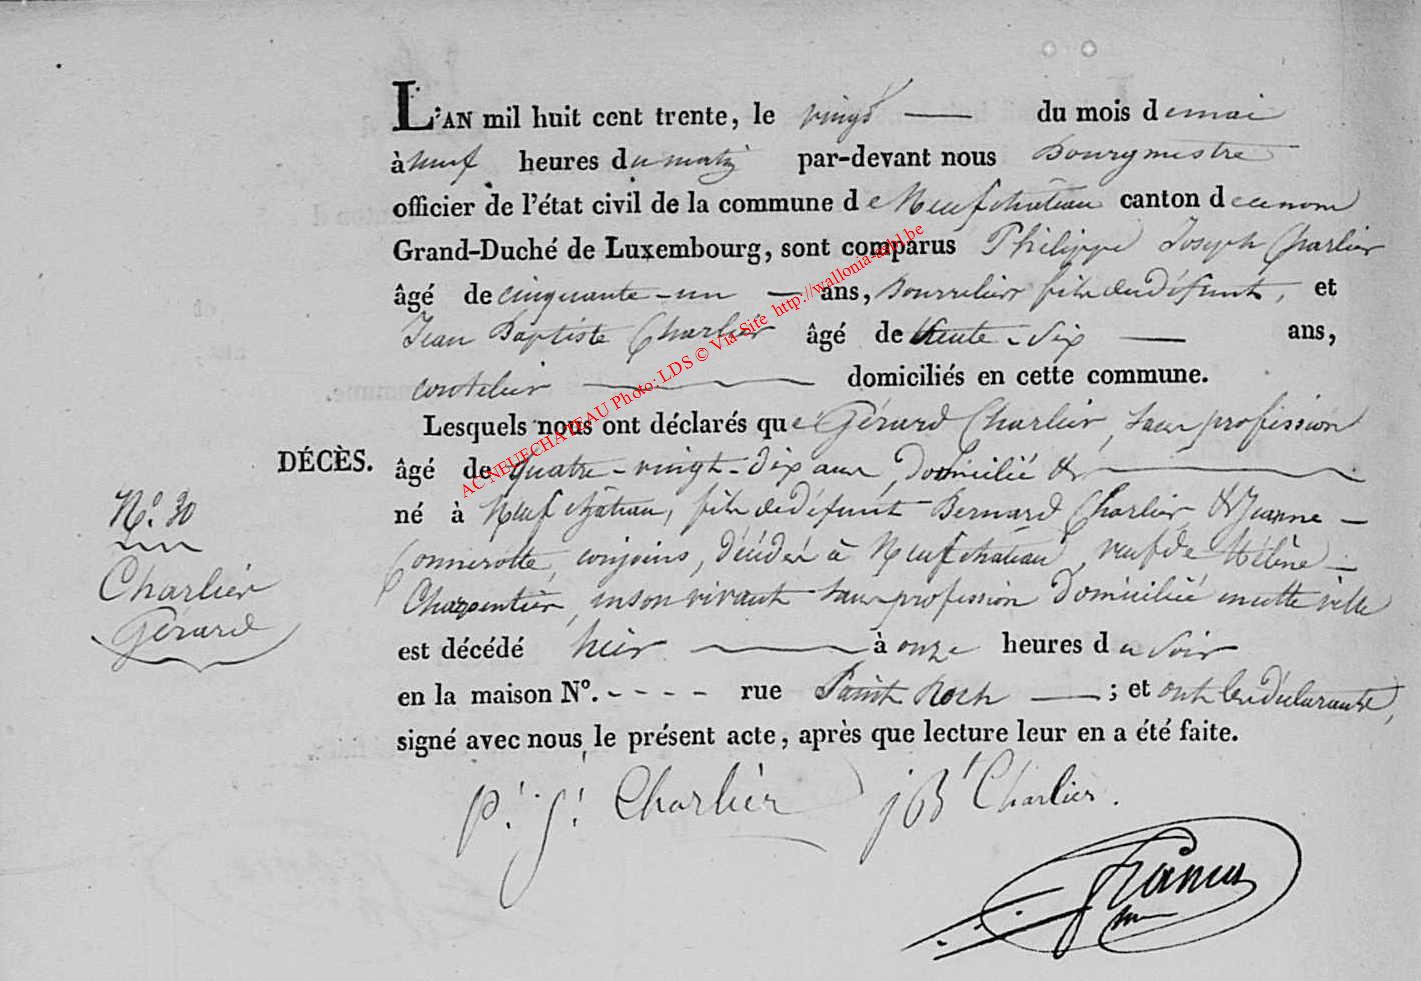 L'AN mil huit cent trente, le vingt du mois de mai
à neuf heures du matin par-devant nous Bourgmestre
officier de l'état civil de la commune de Neufchâteau canton de ce nom
Grand-Duché de Luxembourg, sont comparus Philippe Joseph Charlier
âgé de cinquante-un ans, Bourrelier fils du défunt, et
Jean Baptiste Charlier âgé de trente-six ans,
coutelier domiciliés en cette commune.
Lesquels nous ont déclarés que Gérard Charlier, sans profession
DÉCÈS. âgé de quatre-vingt-dix ans, Domicilié &
né à Neufchâteau, fils de défunt Bernard Charlier & Jeanne
Connerotte, conjoins, décédés à Neufchâteau, veuf de Hélène
Charpentier, en son vivant sans profession Domiciliée en cette ville
est décédé hier à onze heures du soir
en la maison N°. - - - - rue Saint Roch ; et ont les déclarants,
signé avec nous, le présent acte, après que lecture leur en a été faite.
N°. 30
Charlier
Gérard
p. j. Charlier
j B Charlier.
AC NEUECHATEAU Photo: LDS © Via Site http://wallonia-asbl.be